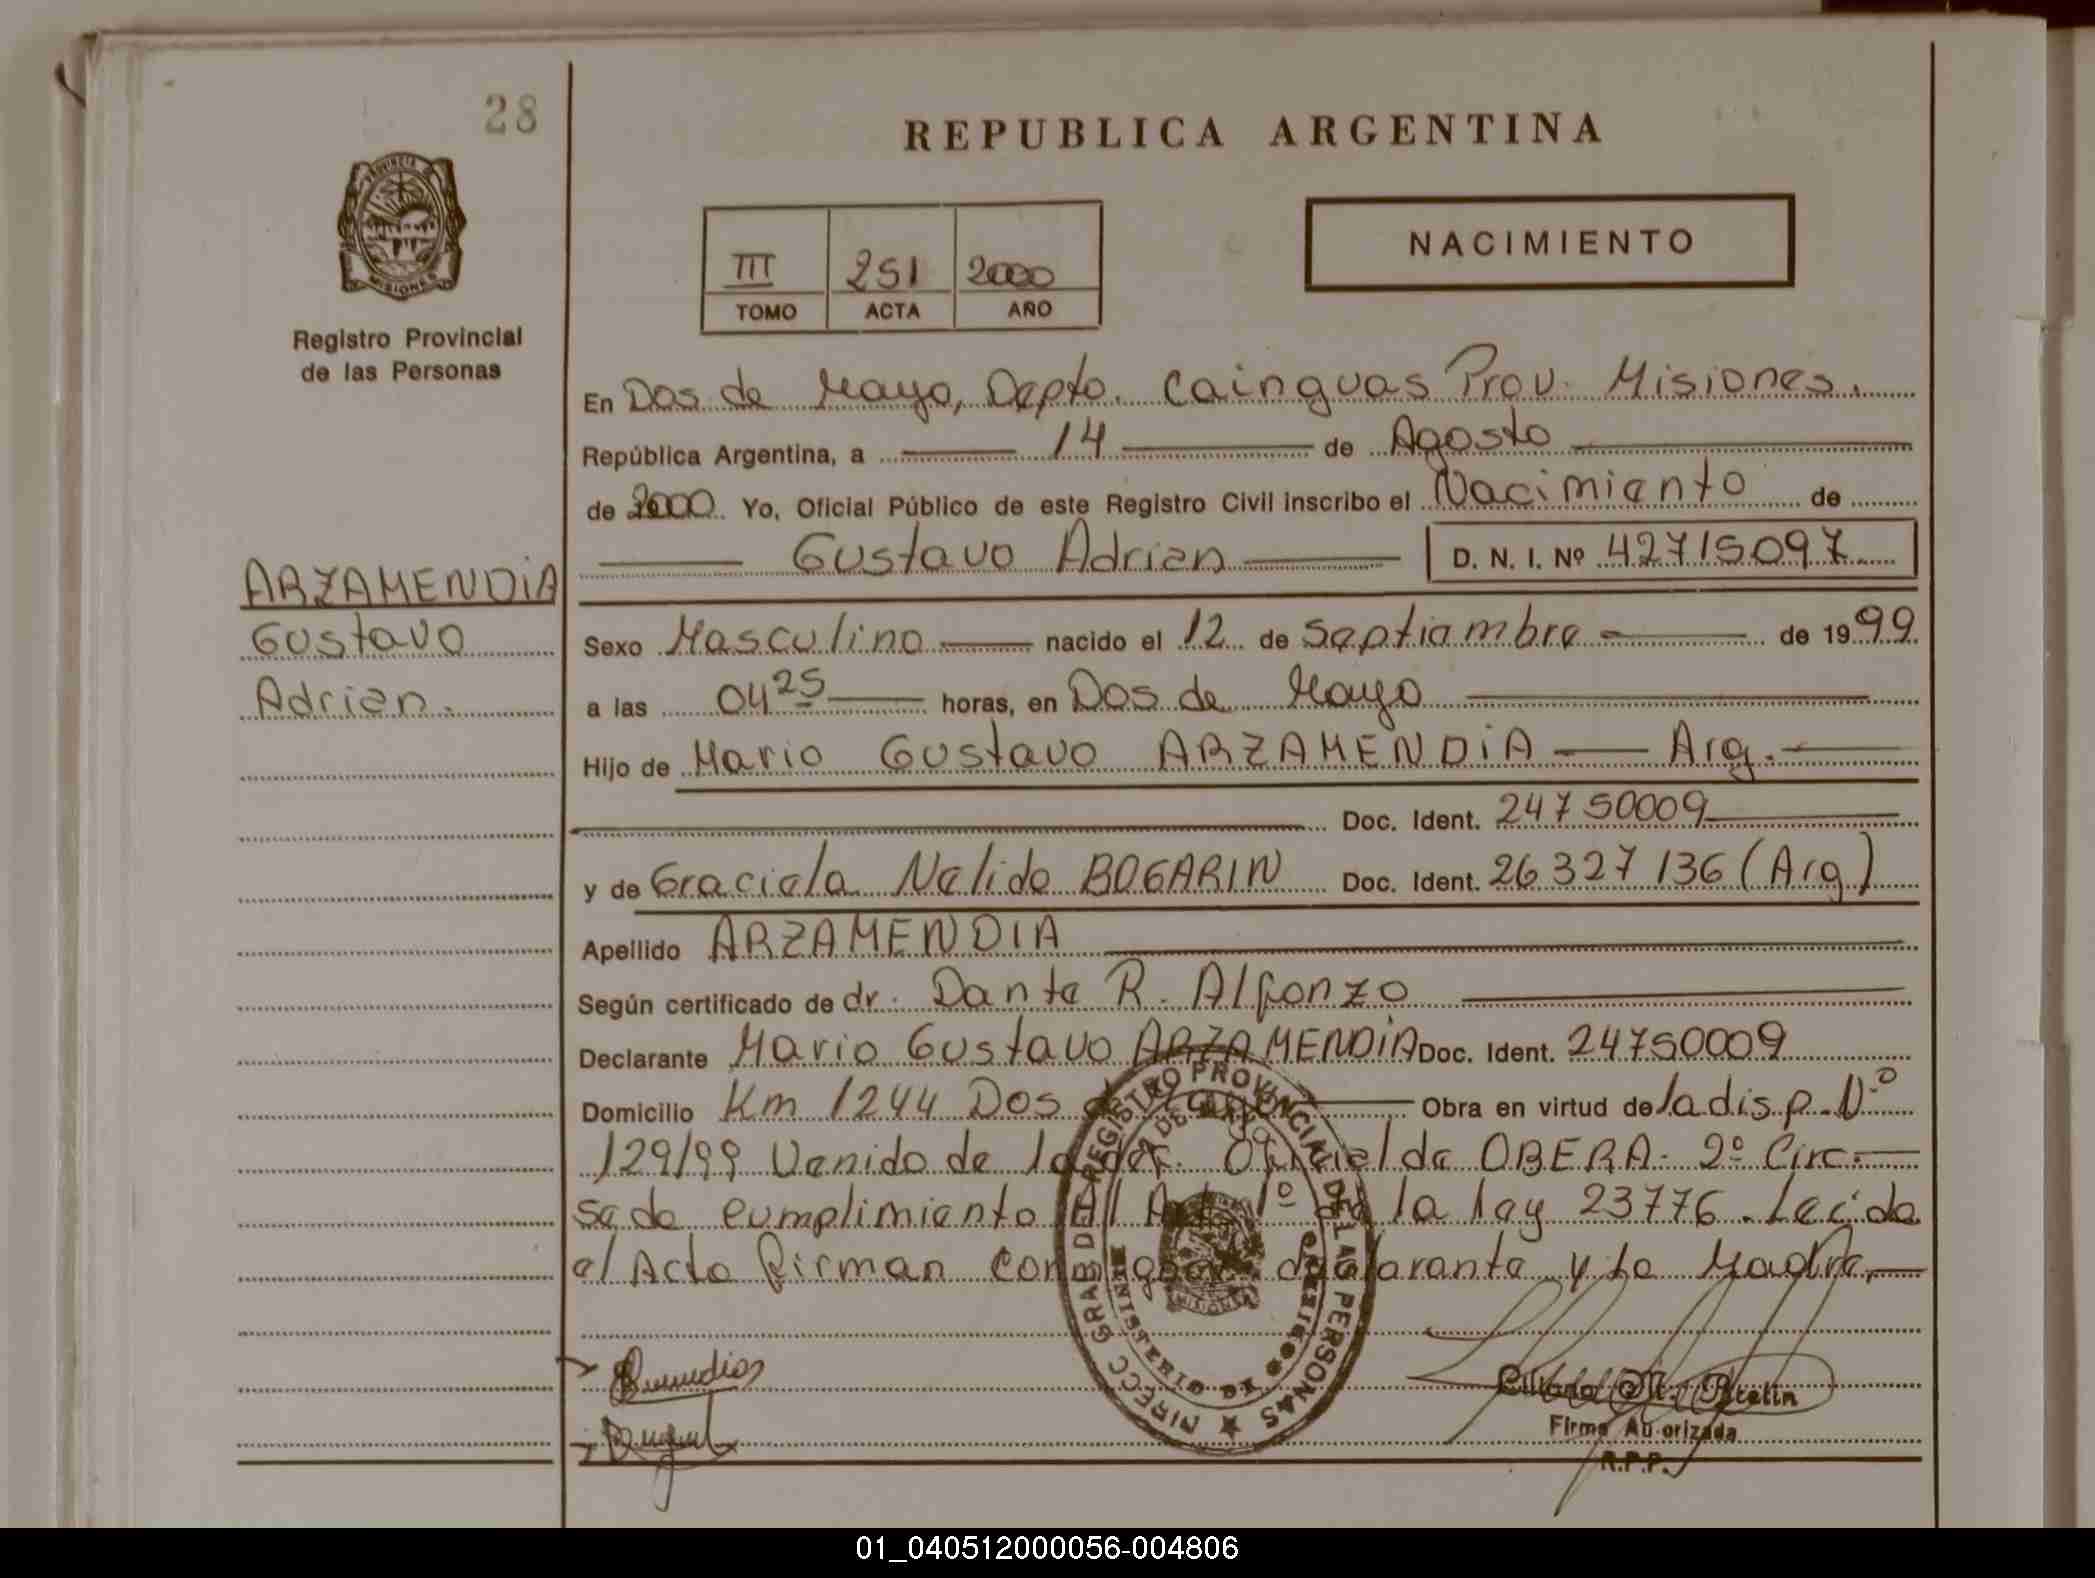 28
REPUBLICA ARGENTINA
PROVINCIA DE
MISIONES
Registro Provincial
de las Personas
III 251 2000
TOMO ACTA AÑO
NACIMIENTO
En Dos de Mayo, Depto. Cainguas Prov. Misiones.
República Argentina, a 14 de Agosto
de 2000 Yo, Oficial Público de este Registro Civil inscribo el Nacimiento de
Gustavo Adrian D. N. I. Nº 42715097
ARZAMENDiA
Gustavo
Adrian.
Sexo Masculino nacido el 12 de Septiembre de 1999
a las 04 25 horas, en Dos de Mayo
Hijo de Mario Gustavo ARZAMENDiA Arg.
Doc. Ident. 24750009
y de Graciela Nelida BOGARIN Doc. Ident. 26327136 (Arg)
Apellido ARZAMENDIA
Según certificado de dr. Dante R. Alfonzo
Declarante Mario Gustavo ARZAMENDiA Doc. Ident. 24750009
Domicilio Km 1244 Dos de Mayo Obra en virtud de la disp. Nº
129/99 Venido de la del. Oficial de OBERA. 2º Circ.
se da cumplimiento Al Art. 1º de la ley 23776. Leida
el Acta firman conmigo el declarante y la Madre.
DIRECC GRAL DEL REGISTRO PROVINCIAL DE LAS PERSONAS
MINISTERIO DE GOBIERNO
MISIONES
Firma Autorizada
R.P.P.
01_040512000056-004806